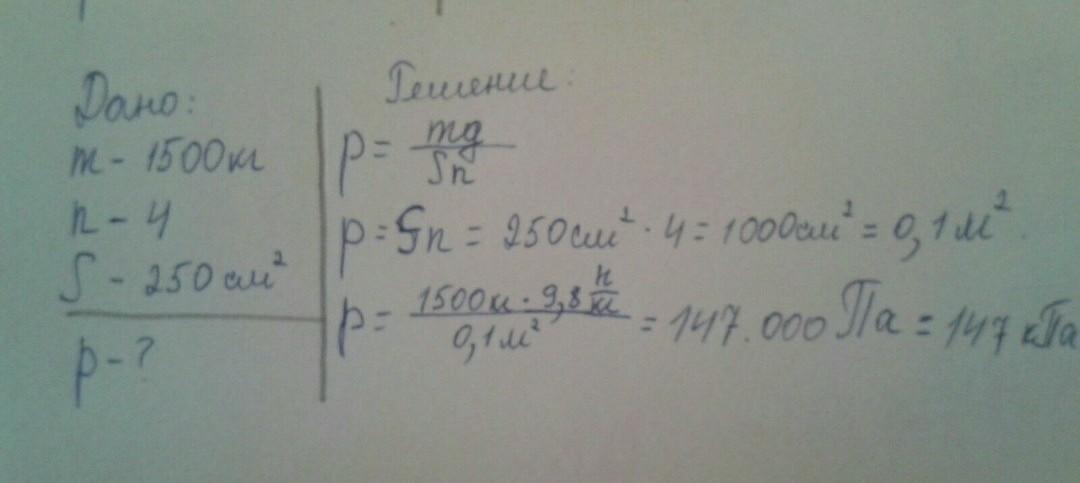 Дано:
m - 1500кг
n - 4
S - 250 см²
p - ?
Решение:
p = mg / Sn
p = Sn = 250см² · 4 = 1000см² = 0,1м².
p = 1500кг · 9,8 н/кг / 0,1м² = 147.000 Па = 147 кПа